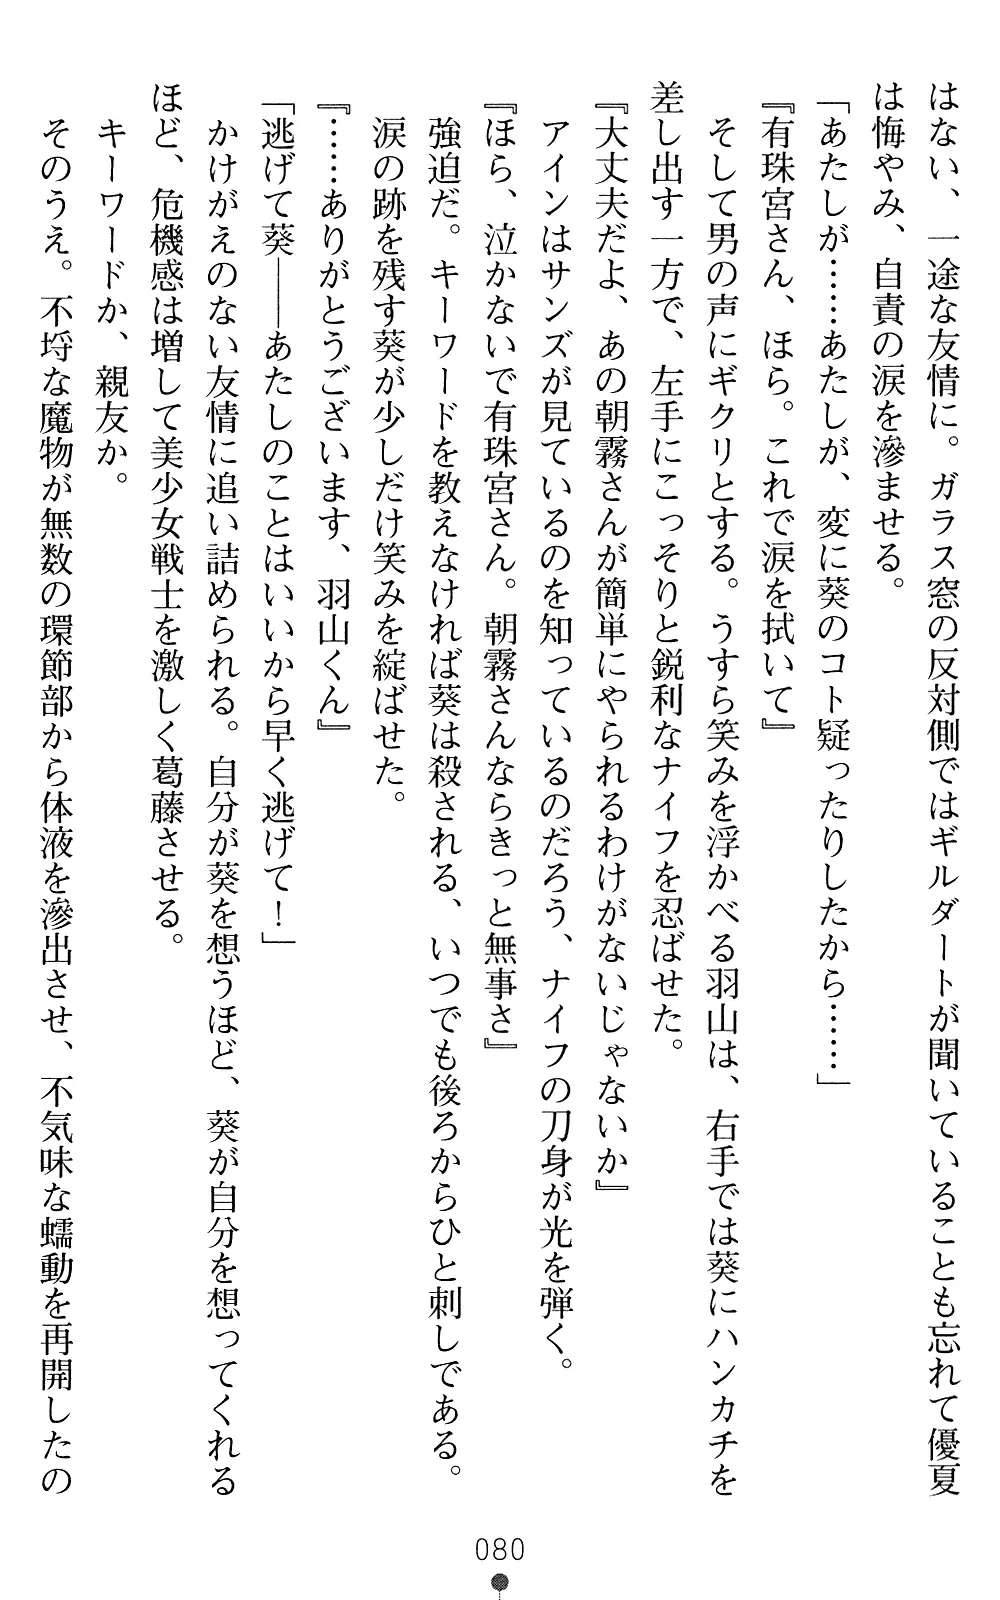 はない、一途な友情に。ガラス窓の反対側ではギルダートが聞いていることも忘れて優夏
は悔やみ、自責の涙を滲ませる。
「あたしが……あたしが、変に葵のコト疑ったりしたから……」
『有珠宮さん、ほら。これで涙を拭いて』
　そして男の声にギクリとする。うすら笑みを浮かべる羽山は、右手では葵にハンカチを
差し出す一方で、左手にこっそりと鋭利なナイフを忍ばせた。
『大丈夫だよ、あの朝霧さんが簡単にやられるわけがないじゃないか』
　アインはサンズが見ているのを知っているのだろう、ナイフの刀身が光を弾く。
『ほら、泣かないで有珠宮さん。朝霧さんならきっと無事さ』
　強迫だ。キーワードを教えなければ葵は殺される、いつでも後ろからひと刺しである。
　涙の跡を残す葵が少しだけ笑みを綻ばせた。
『……ありがとうございます、羽山くん』
「逃げて葵――あたしのことはいいから早く逃げて！」
　かけがえのない友情に追い詰められる。自分が葵を想うほど、葵が自分を想ってくれる
ほど、危機感は増して美少女戦士を激しく葛藤させる。
　キーワードか、親友か。
　そのうえ。不埒な魔物が無数の環節部から体液を滲出させ、不気味な蠕動を再開したの
080